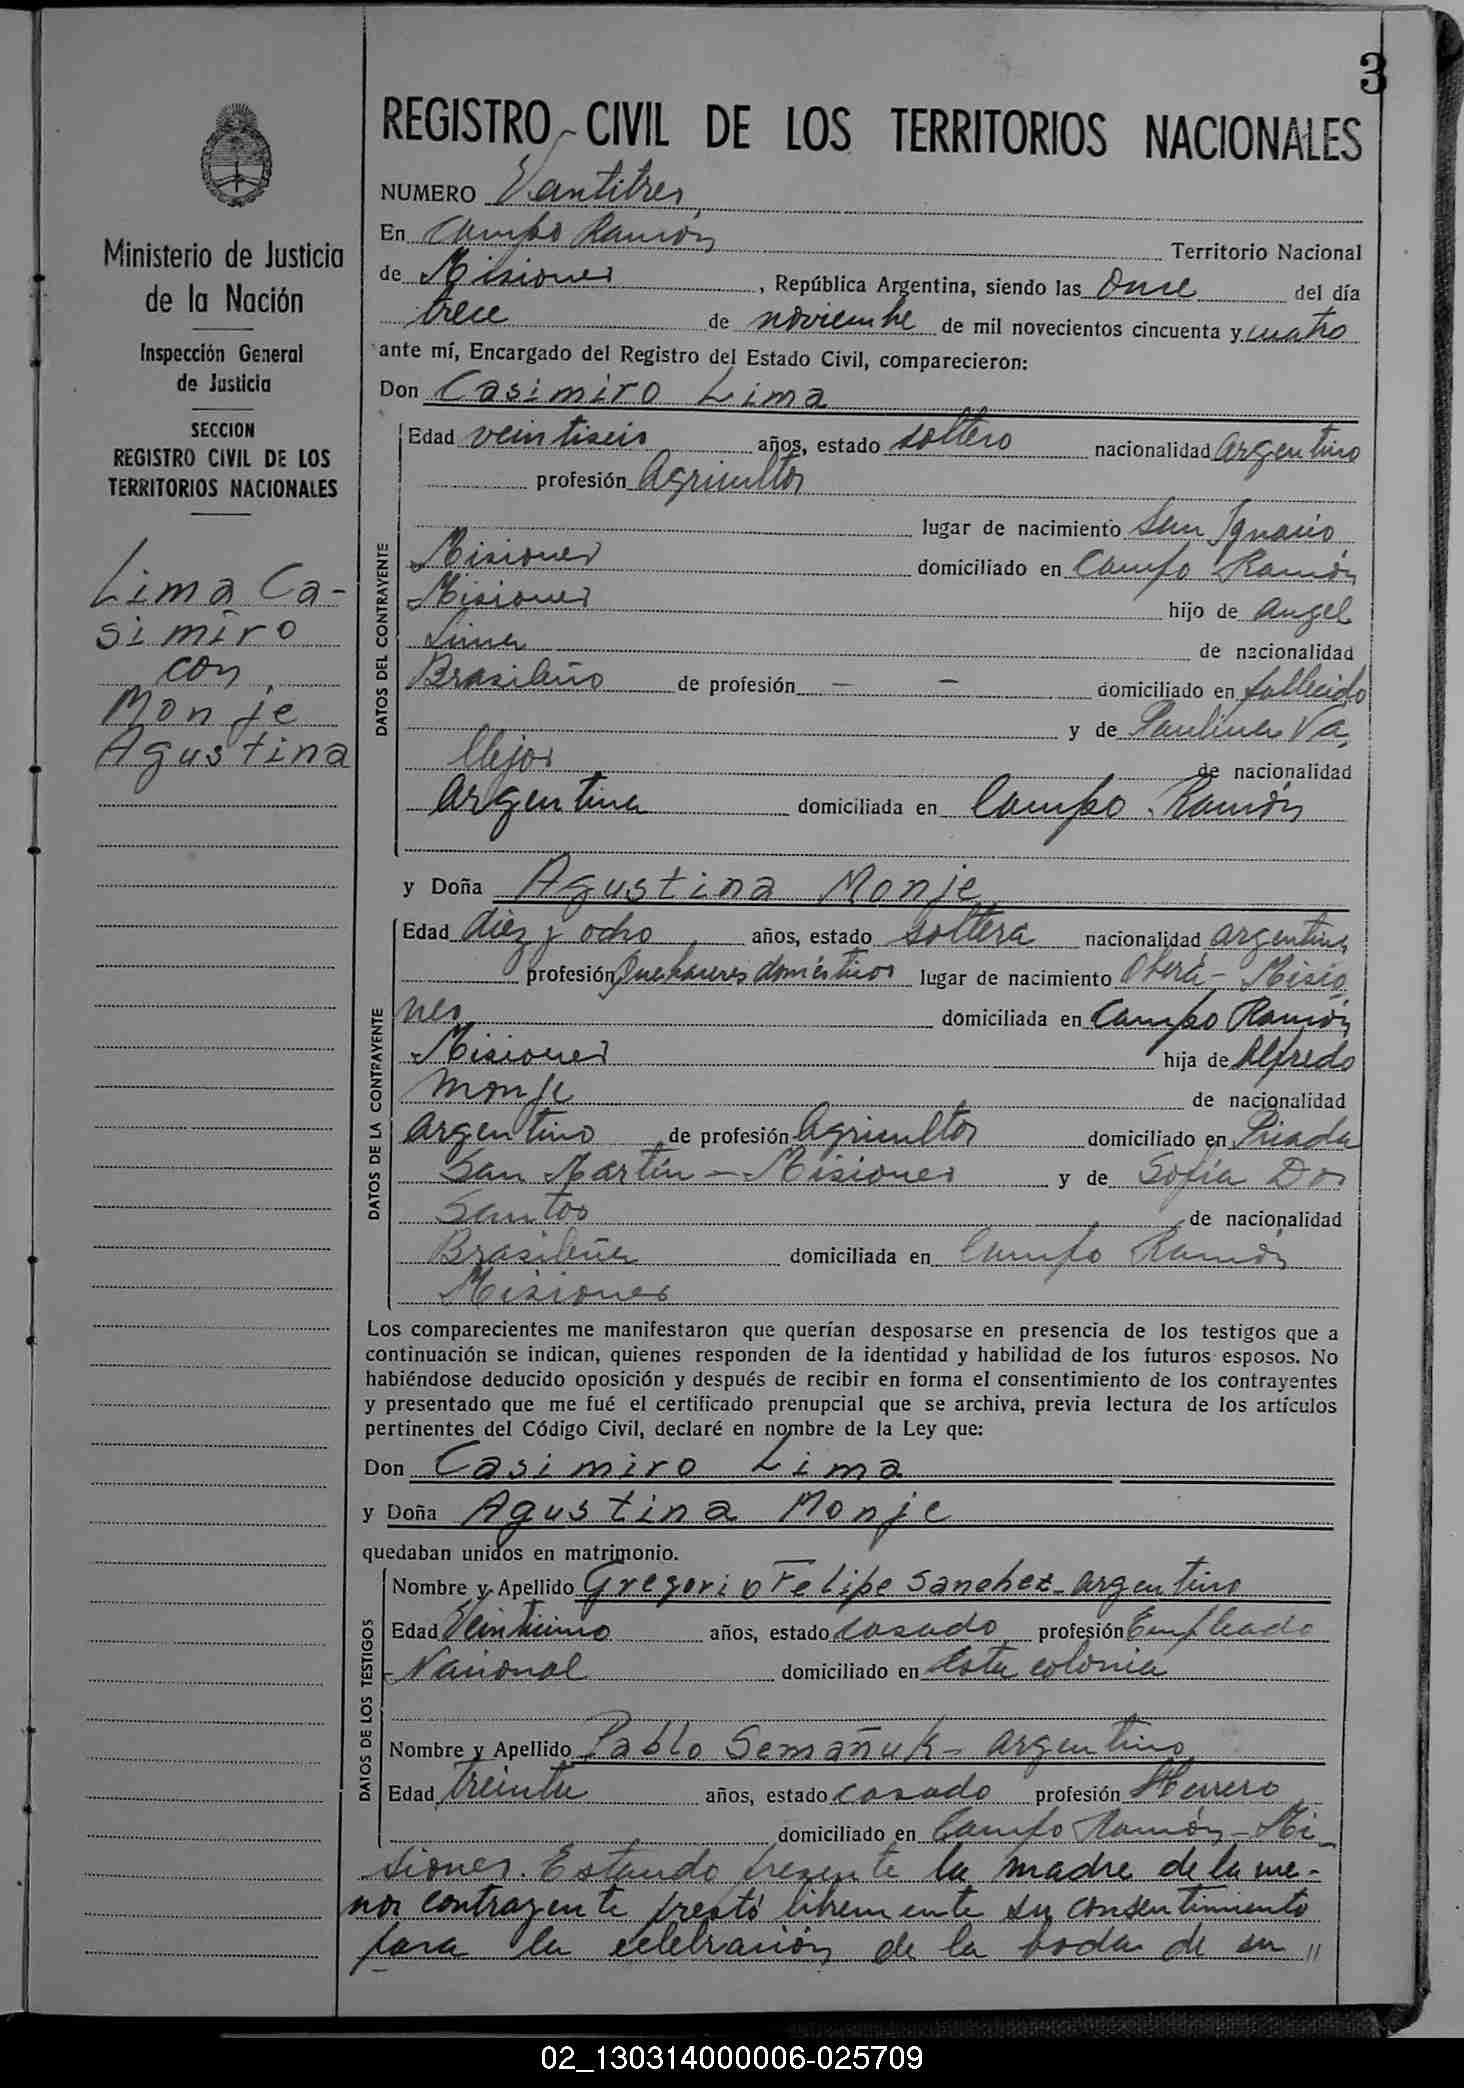 3
REGISTRO CIVIL DE LOS TERRITORIOS NACIONALES
NUMERO Vantitres
En Campo Ramón Territorio Nacional
de Misiones, República Argentina, siendo las Once del día
trece de noviembre de mil novecientos cincuenta y cuatro
ante mí, Encargado del Registro del Estado Civil, comparecieron:
Don Casimiro Lima
Ministerio de Justicia
de la Nación
Inspección General
de Justicia
SECCION
REGISTRO CIVIL DE LOS
TERRITORIOS NACIONALES
Lima Ca-
simiro
con
Monje
Agustina
DATOS DEL CONTRAYENTE
Edad veintiseis años, estado soltero nacionalidad argentino
profesión Agricultor
lugar de nacimiento San Ignacio
Misiones domiciliado en Campo Ramón
Misiones hijo de Angel
Lima de nacionalidad
Brasileño de profesión — — domiciliado en fallecido
y de Paulina Va
llejos de nacionalidad
argentina domiciliada en Campo Ramón
y Doña Agustina Monje
DATOS DE LA CONTRAYENTE
Edad diez y ocho años, estado soltera nacionalidad argentina
profesión Quehaceres domésticos lugar de nacimiento Oberá - Misio
nes domiciliada en Campo Ramón
Misiones hija de Alfredo
Monje de nacionalidad
argentino de profesión Agricultor domiciliado en Picada
San Martín - Misiones y de Sofía Dos
Santos de nacionalidad
Brasileña domiciliada en Campo Ramón
Misiones
Los comparecientes me manifestaron que querían desposarse en presencia de los testigos que a
continuación se indican, quienes responden de la identidad y habilidad de los futuros esposos. No
habiéndose deducido oposición y después de recibir en forma el consentimiento de los contrayentes
y presentado que me fué el certificado prenupcial que se archiva, previa lectura de los artículos
pertinentes del Código Civil, declaré en nombre de la Ley que:
Don Casimiro Lima
y Doña Agustina Monje
quedaban unidos en matrimonio.
DATOS DE LOS TESTIGOS
Nombre y Apellido Gregorio Felipe Sanchez - argentino
Edad Veintiuno años, estado casado profesión Empleado
Nacional domiciliado en esta colonia
Nombre y Apellido Pablo Semañuk - argentino
Edad treinta años, estado casado profesión Herrero
domiciliado en Campo Ramón - Mi-
siones. Estando presente la madre de la me-
nor contrayente prestó libremente su consentimiento
para la celebración de la boda de su //
02_130314000006-025709